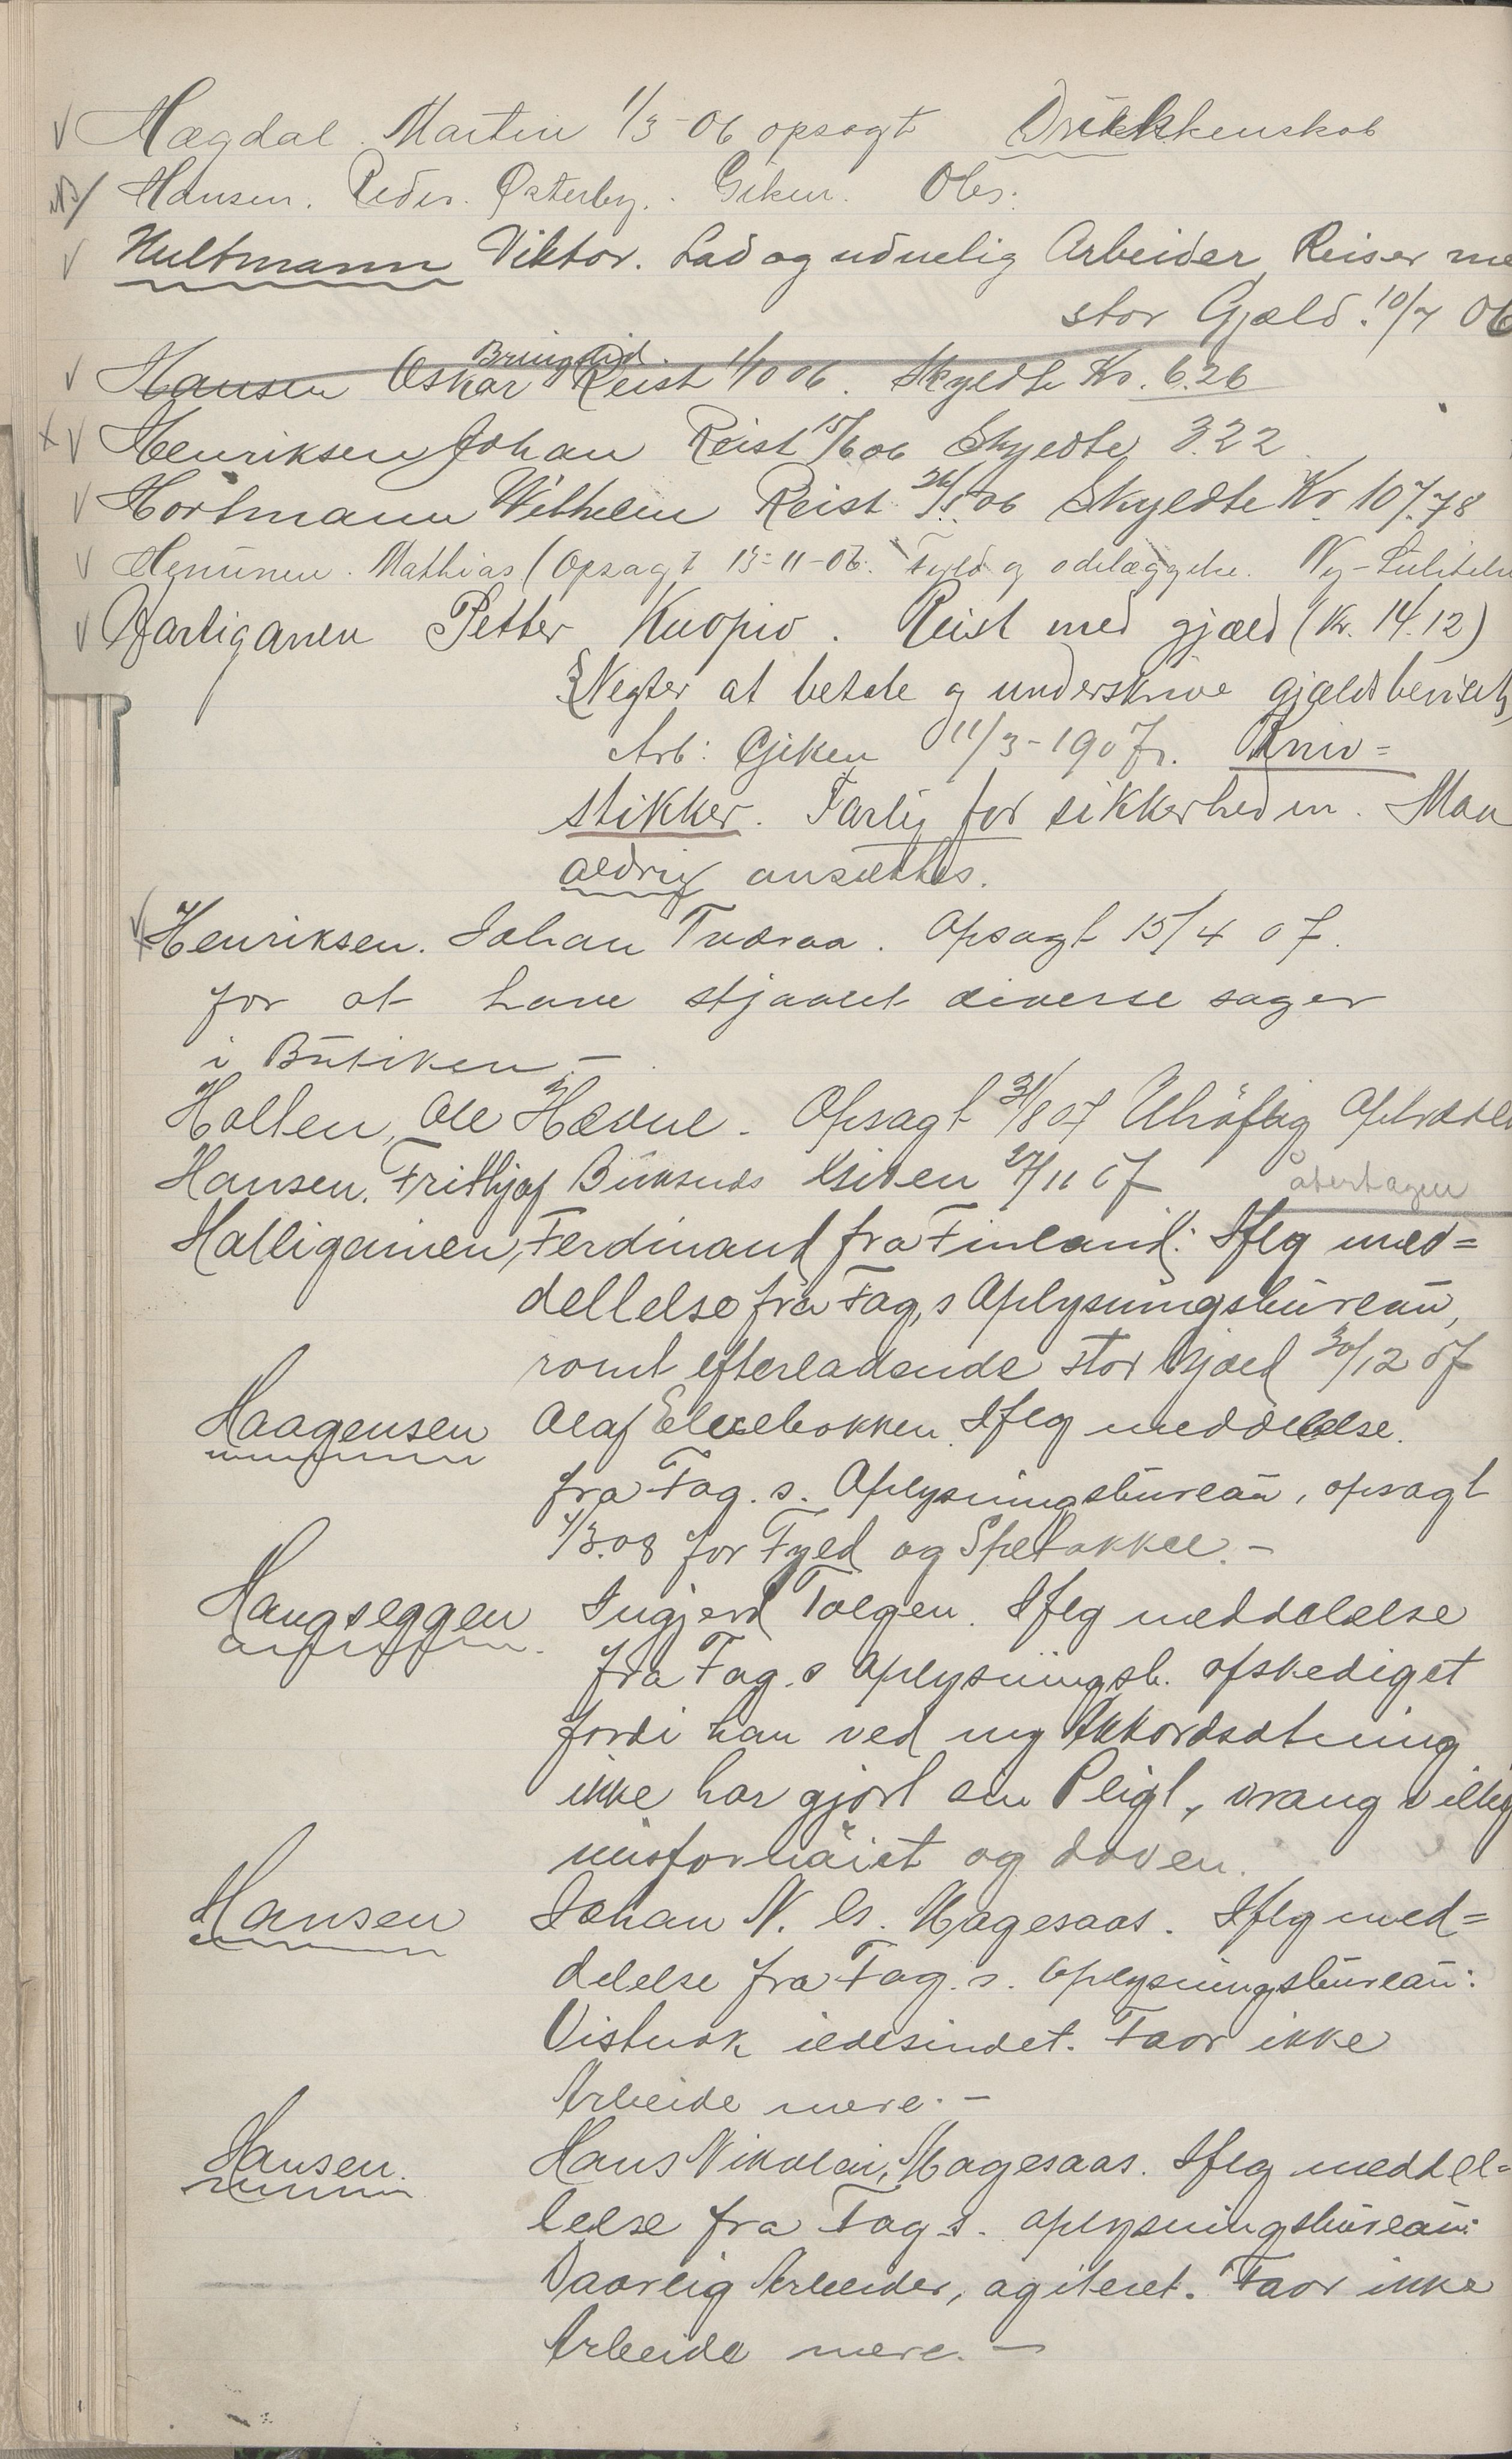 √ Hægdal. Martin 1/3-06 opsagt Drikkenskab
Hansen. Peder. Østerby. Giken. Obs:
√ Hultmann Viktor. Lad og uduelig Arbeider, Reiser me
stor Gjæld. 10/7 06
Bringslid.
√ Hansen Oskar Reist 1/10 06. Skyldte Kr. 6.26
x √ Henriksen Johan Reist 15/6 06 Skyldte 3.22
√ Hortmann Wilhelm Reist 26/5 06 Skyldte Kr. 107.78
√ Mathias (Opsagt 13-11-06. Fyld og ødelæggelse. Ny-Sulitelm
√ Hartiganen Petter Kuopio. Reist med gjæld (kr. 14.12)
Negter at betale og underskrive gjældsbeviset,
Arb: Gjiken 11/3-1907. Kniv=
stikker. Farlig for sikkerheden. Maa
aldrig ansættes.
√ Henriksen. Johan Tværaa. Opsagt 15/4 07.
for at have stjaalet diverse sager
i Butiken –
Hollen, Ole Hævne. Opsagt 31/8 07 Uhöflig Optræden
Hansen. Frithjof Buksnes 27/11 07 återtagen
Halligainen, Ferdinand fra Finland: Iflg med=
dellelse fra Fag,s Oplysningsbureau,
rømt efterladende stor Gjæld 30/12 07
Haagensen Olaf Elvebakken. Iflg meddelelse.
fra Fag. s. Oplysningsbureau, opsagt
4/3.08 for Fyld og Spetakkel. –
Haugseggen Ingjerd Tolgen. Iflg meddelelse
fra Fag. s Oplysningsb. afskediget
fordi han ved ny Akkordsætning
ikke har gjort sin Pligt, vrangvillig
misfornöiet og doven.
Hansen Johan N. Hagesaas. Iflg med=
delelse fra Fag. s. Oplysningsbureau:
Vistnok ildesindet. Faar ikke
Arbeide mere. –
Hansen. Hans Nikolai, Hagesaas. Iflg meddel=
lelse fra Fag s. oplysningsbureau:
Daarlig Arbeider, agiteret. Faar ikke
Arbeide mere. –